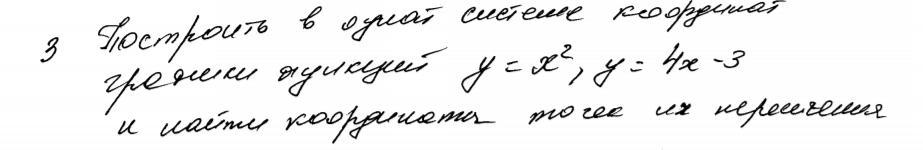 3 Построить в одной системе координат
графики функций y = x², y = 4x - 3
и найти координаты точек их пересечения